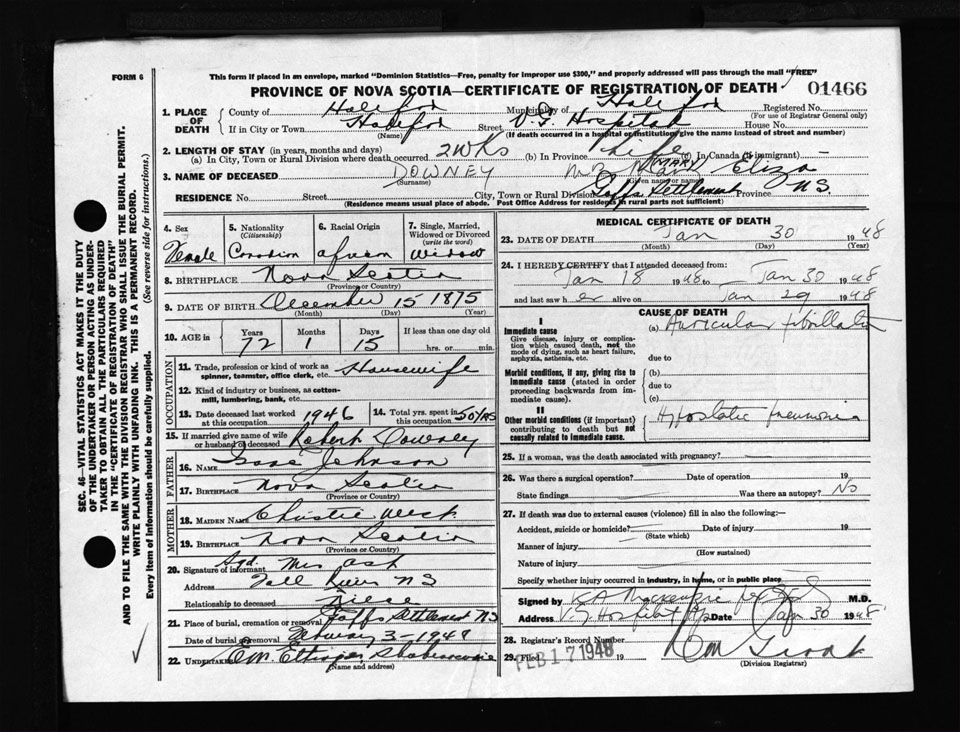 FORM 6
This form if placed in an envelope, marked "Dominion Statistics—Free, penalty for improper use $300," and properly addressed will pass through the mail "FREE"
PROVINCE OF NOVA SCOTIA—CERTIFICATE OF REGISTRATION OF DEATH
01466
1. PLACE OF DEATH
County of Halifax Municipality of Halifax Registered No.
(For use of Registrar General only)
If in City or Town Halifax Street V.G. Hospital House No.
(Name) (If death occurred in a hospital or institution, give the name instead of street and number)
2. LENGTH OF STAY (in years, months and days)
(a) In City, Town or Rural Division where death occurred 2 WKS (b) In Province Life (c) In Canada (if immigrant)
3. NAME OF DECEASED DOWNEY MARY Eliza
(Surname) (Given name or names)
RESIDENCE No. Street City, Town or Rural Division Settlement Province N.S.
(Residence means usual place of abode. Post Office Address for residents in rural parts not sufficient)
4. Sex 5. Nationality 6. Racial Origin 7. Single, Married, Widowed or Divorced
(Citizenship) (write the word)
Female Canadian African Widow
8. BIRTHPLACE Nova Scotia
(Province or Country)
9. DATE OF BIRTH December 15 1875
(Month) (Day) (Year)
10. AGE in Years Months Days If less than one day old
72 1 15 hrs. or min.
OCCUPATION
11. Trade, profession or kind of work as spinner, teamster, office clerk, etc. Housewife
12. Kind of industry or business, as cotton-mill, lumbering, bank, etc.
13. Date deceased last worked at this occupation 1946 14. Total yrs. spent in this occupation 50 YRS
15. If married give name of wife or husband of deceased Robert Downey
FATHER
16. Name Isaac Johnson
17. Birthplace Nova Scotia
(Province or Country)
MOTHER
18. Maiden Name Christie
19. Birthplace Nova Scotia
(Province or Country)
20. Signature of informant Sgd. Mrs Ash
Address Fall River N S
Relationship to deceased Niece
21. Place of burial, cremation or removal Settlement NS
Date of burial or removal 3-1948
22. Undertaker E.M. Ettinger, Shubenacadie
(Name and address)
MEDICAL CERTIFICATE OF DEATH
23. DATE OF DEATH Jan 30 1948
(Month) (Day) (Year)
24. I HEREBY CERTIFY that I attended deceased from:
Jan 18 1948 to Jan 30 1948
and last saw her alive on Jan 29 1948
CAUSE OF DEATH
I
Immediate cause (a) Auricular fibrillation
Give disease, injury or complication which caused death, not the mode of dying, such as heart failure, asphyxia, asthenia, etc.
due to
Morbid conditions, if any, giving rise to immediate cause (stated in order proceeding backwards from immediate cause).
(b)
due to
(c)
II
Other morbid conditions (if important) contributing to death but not causally related to immediate cause.
Hypostatic pneumonia
25. If a woman, was the death associated with pregnancy?
26. Was there a surgical operation? Date of operation 19
State findings Was there an autopsy? No
27. If death was due to external causes (violence) fill in also the following:—
Accident, suicide or homicide? Date of injury 19
(State which)
Manner of injury
(How sustained)
Nature of injury
Specify whether injury occurred in industry, in home, or in public place
Signed by K A MacKenzie M.D.
Address V G Hospital Date Jan 30 1948
28. Registrar's Record Number
29. Filed FEB 17 1948 19
(Division Registrar)
SEC. 46—VITAL STATISTICS ACT MAKES IT THE DUTY
OF THE UNDERTAKER OR PERSON ACTING AS UNDER-
TAKER TO OBTAIN ALL THE PARTICULARS REQUIRED
IN THE "CERTIFICATE OF REGISTRATION OF DEATH"
AND TO FILE THE SAME WITH THE DIVISION REGISTRAR WHO SHALL ISSUE THE BURIAL PERMIT.
WRITE PLAINLY WITH UNFADING INK. THIS IS A PERMANENT RECORD.
Every item of Information should be carefully supplied. (See reverse side for instructions.)